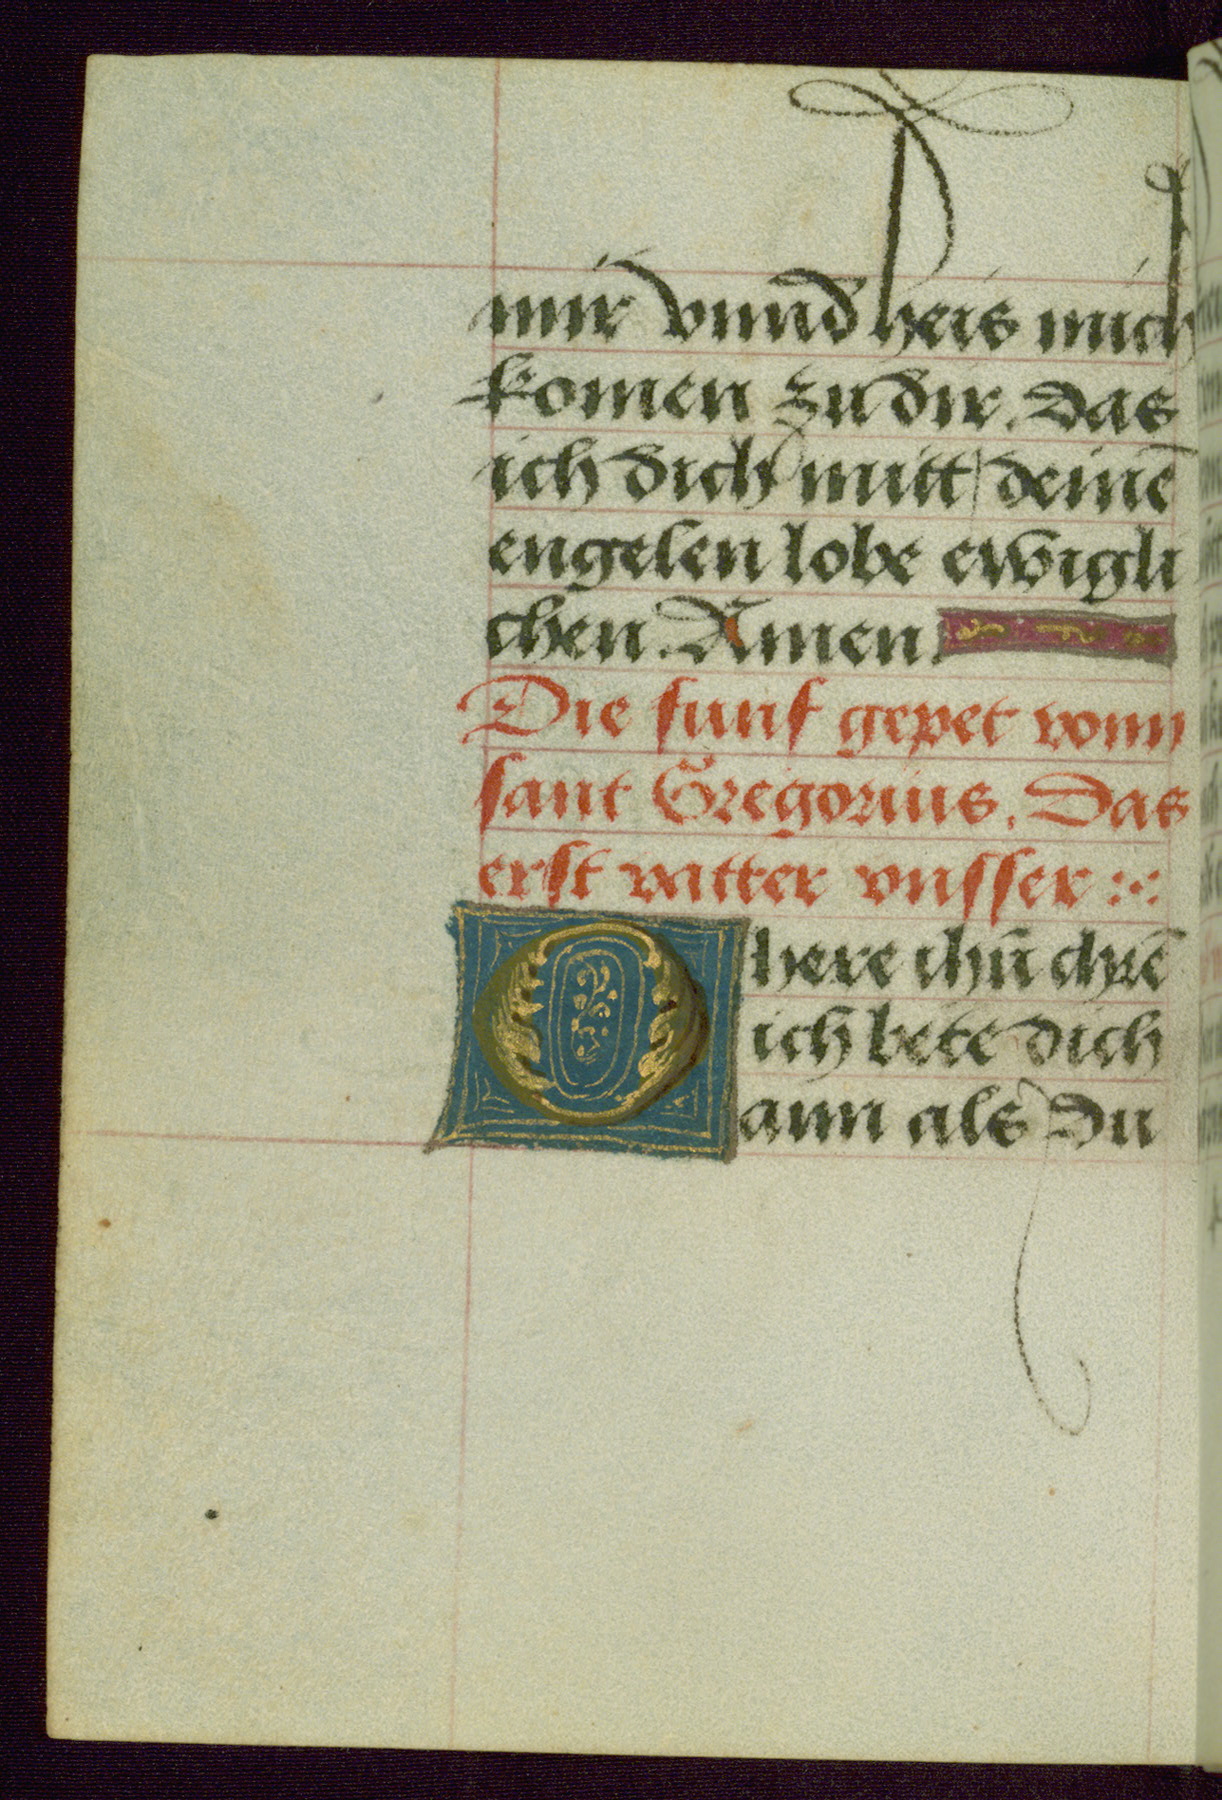 mir vnnd heis mich
komen zu dir. das
ich dich mitt deinē
engelen lobe ewigli
chen. Amen.
Die funf gepet vonn
sant Gregorius. Das
erst vatter vnsser :·:
O here ihū chrē
ich bete dich
ann als du